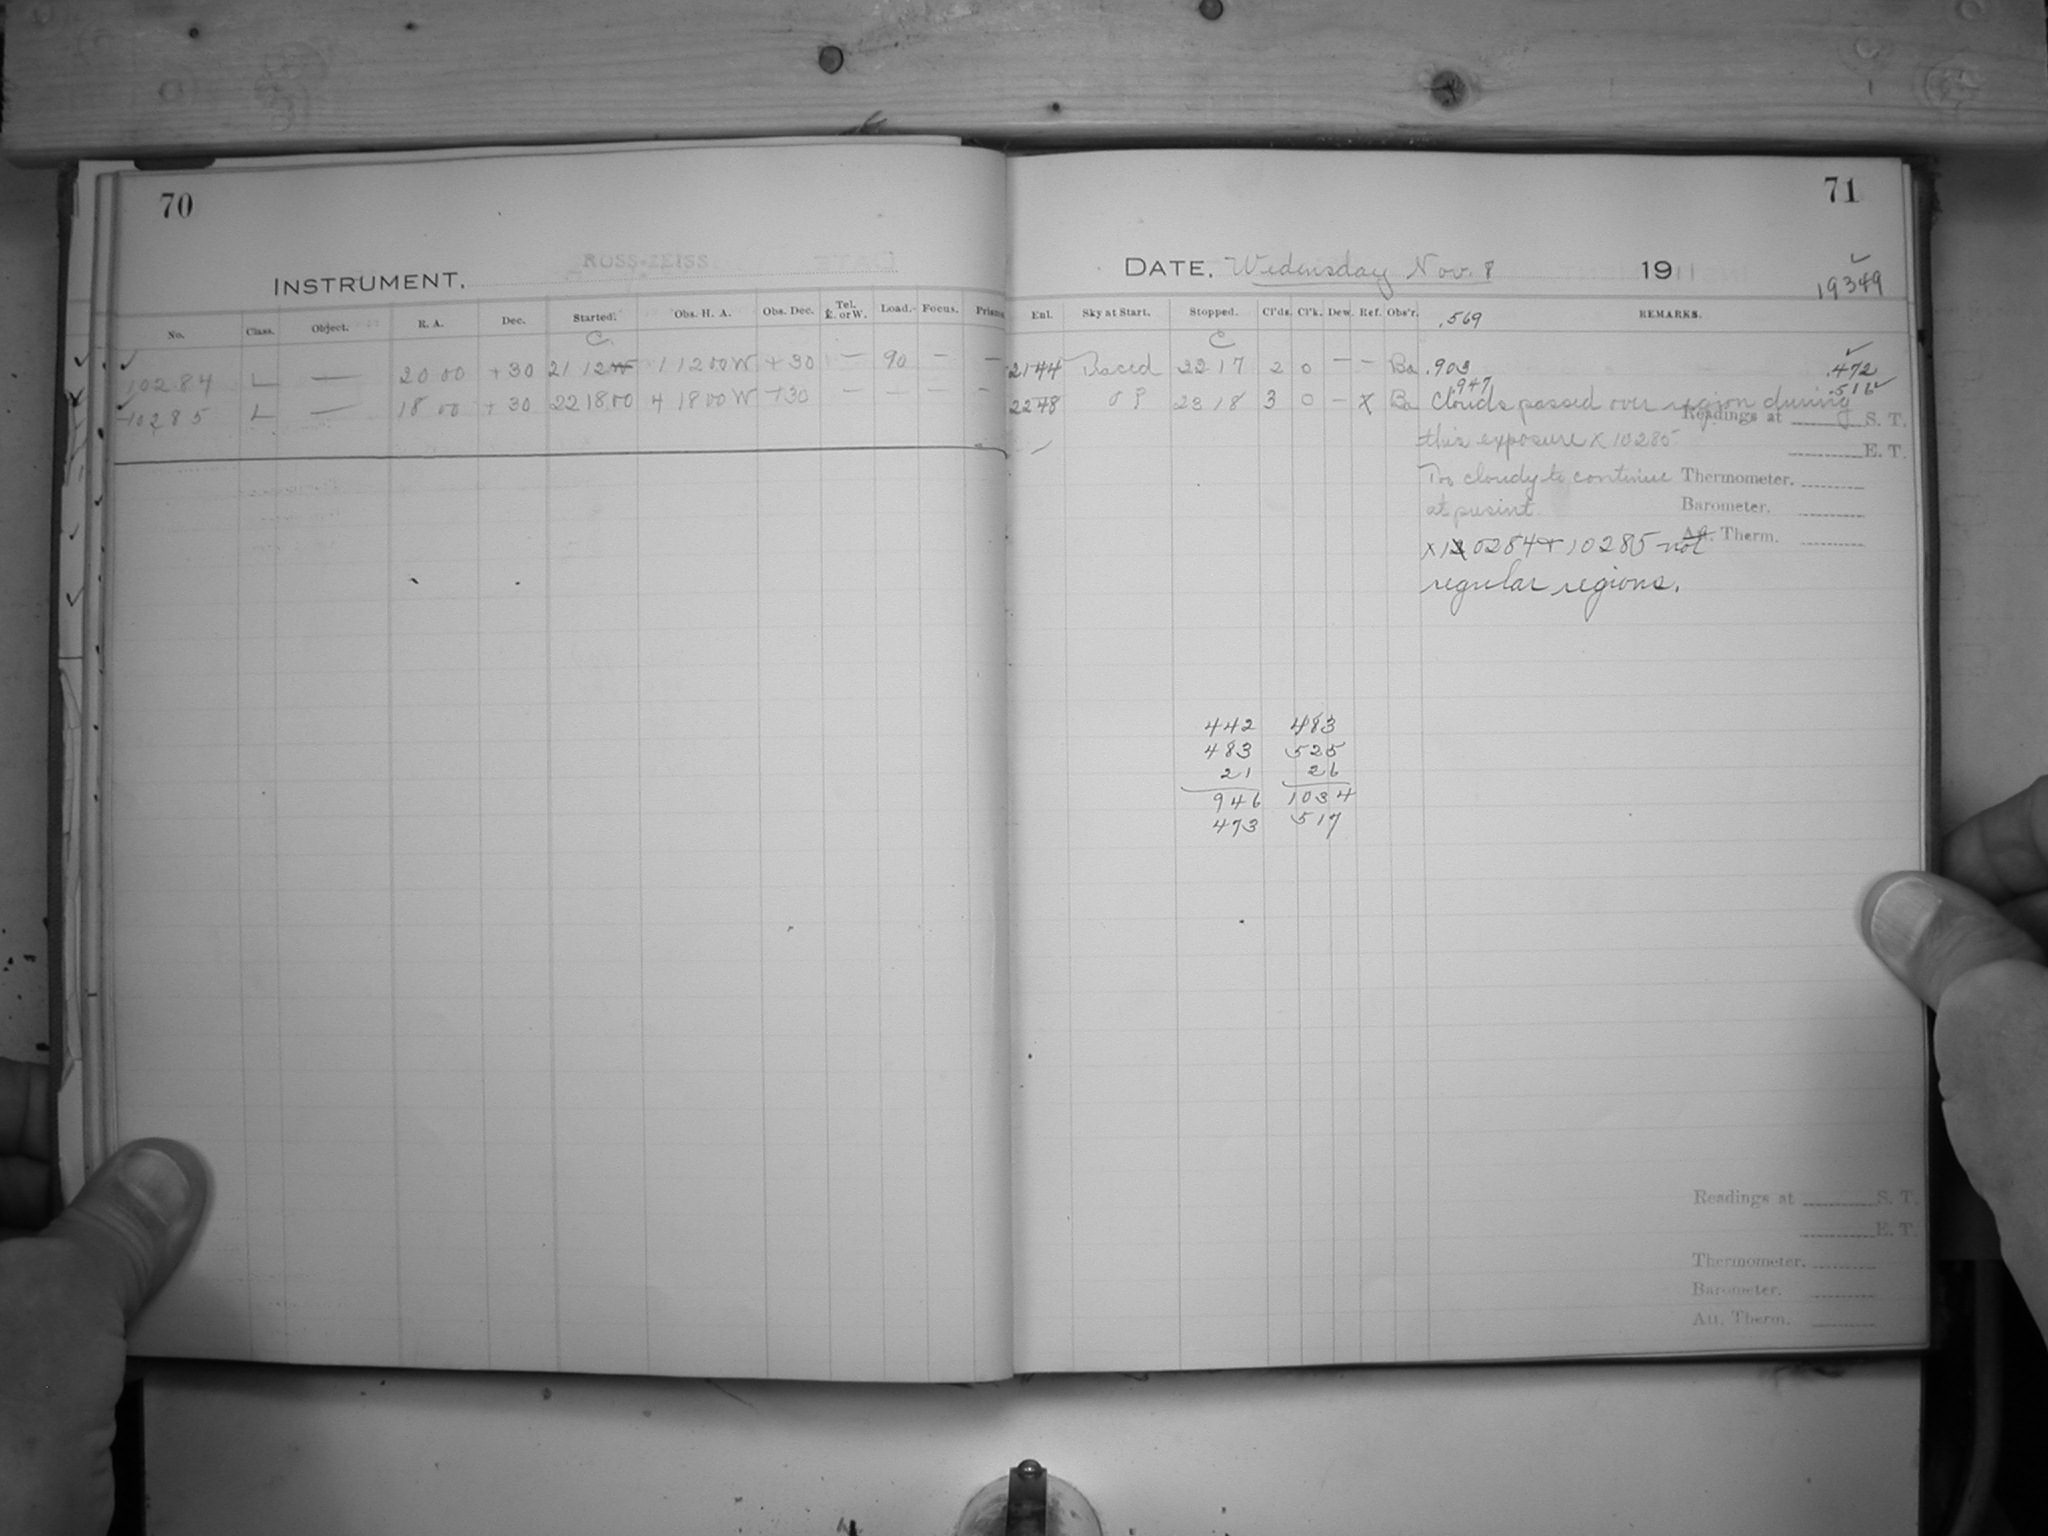 70
71
INSTRUMENT. ROSS-ZEISS
DATE, Wedensday Nov. 8 1911
19349
No. Class. Object. R. A. Dec. Started. Obs. H. A. Obs. Dec. Tel. E. or W. Load. Focus. Prism
Enl. Sky at Start. Stopped. Cl'ds. Cl'k. Dew. Ref. Obs'r. .569 REMARKS.
C.
C
10284 L — 20 00 +30 21 12 1 12 00 W +30 — 90 — —
2144 22 17 2 0 — — Ba .903 .472
10285 L — 18 00 +30 22 18 00 4 18 00 W +30 — — — —
2248 23 18 3 0 — X Ba .947 Clouds passed over region during .516
Readings at S. T.
this exposure X 10285
E. T.
Too cloudy to continue
Thermometer.
at presint
Barometer.
Att. Therm.
X 10284 + 10285 not
regular regions.
442 483
483 525
21 26
946 1034
473 517
Readings at S. T.
E. T.
Thermometer.
Barometer.
Att. Therm.